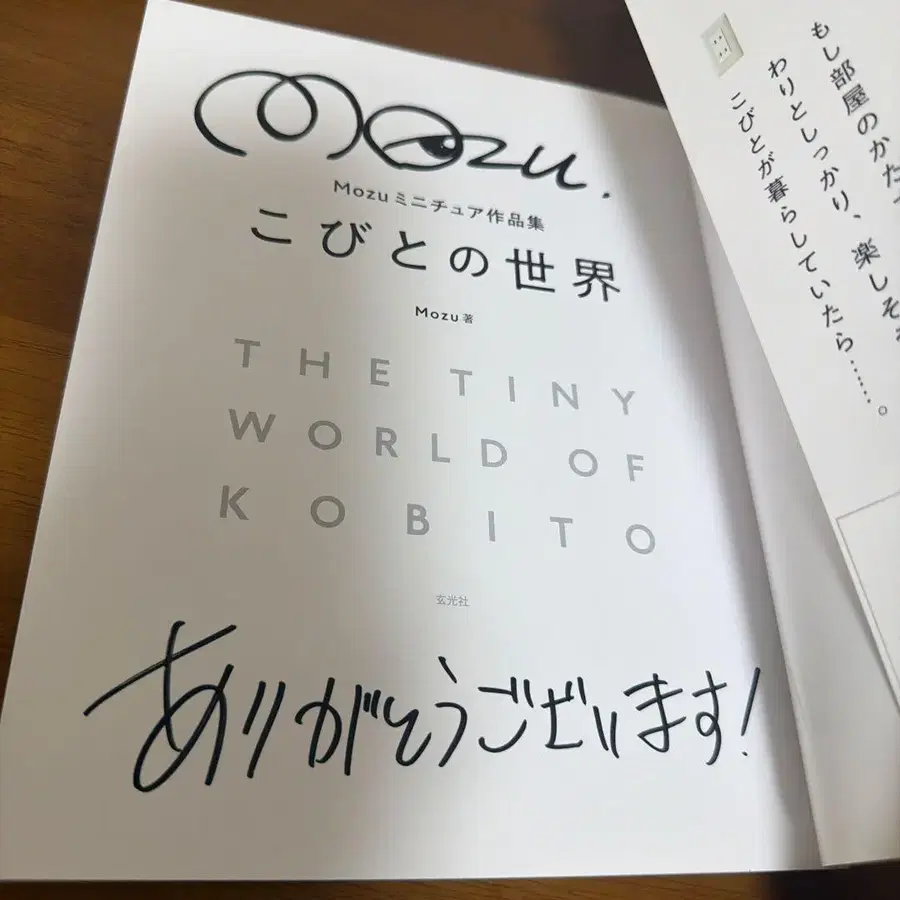 Mozu.
Mozuミニチュア作品集
こびとの世界
Mozu 著
THE TINY
WORLD OF
KOBITO
玄光社
ありがとうございます!
もし部屋のかた
わりとしっかり、楽しそ
こびとが暮らしていたら……。